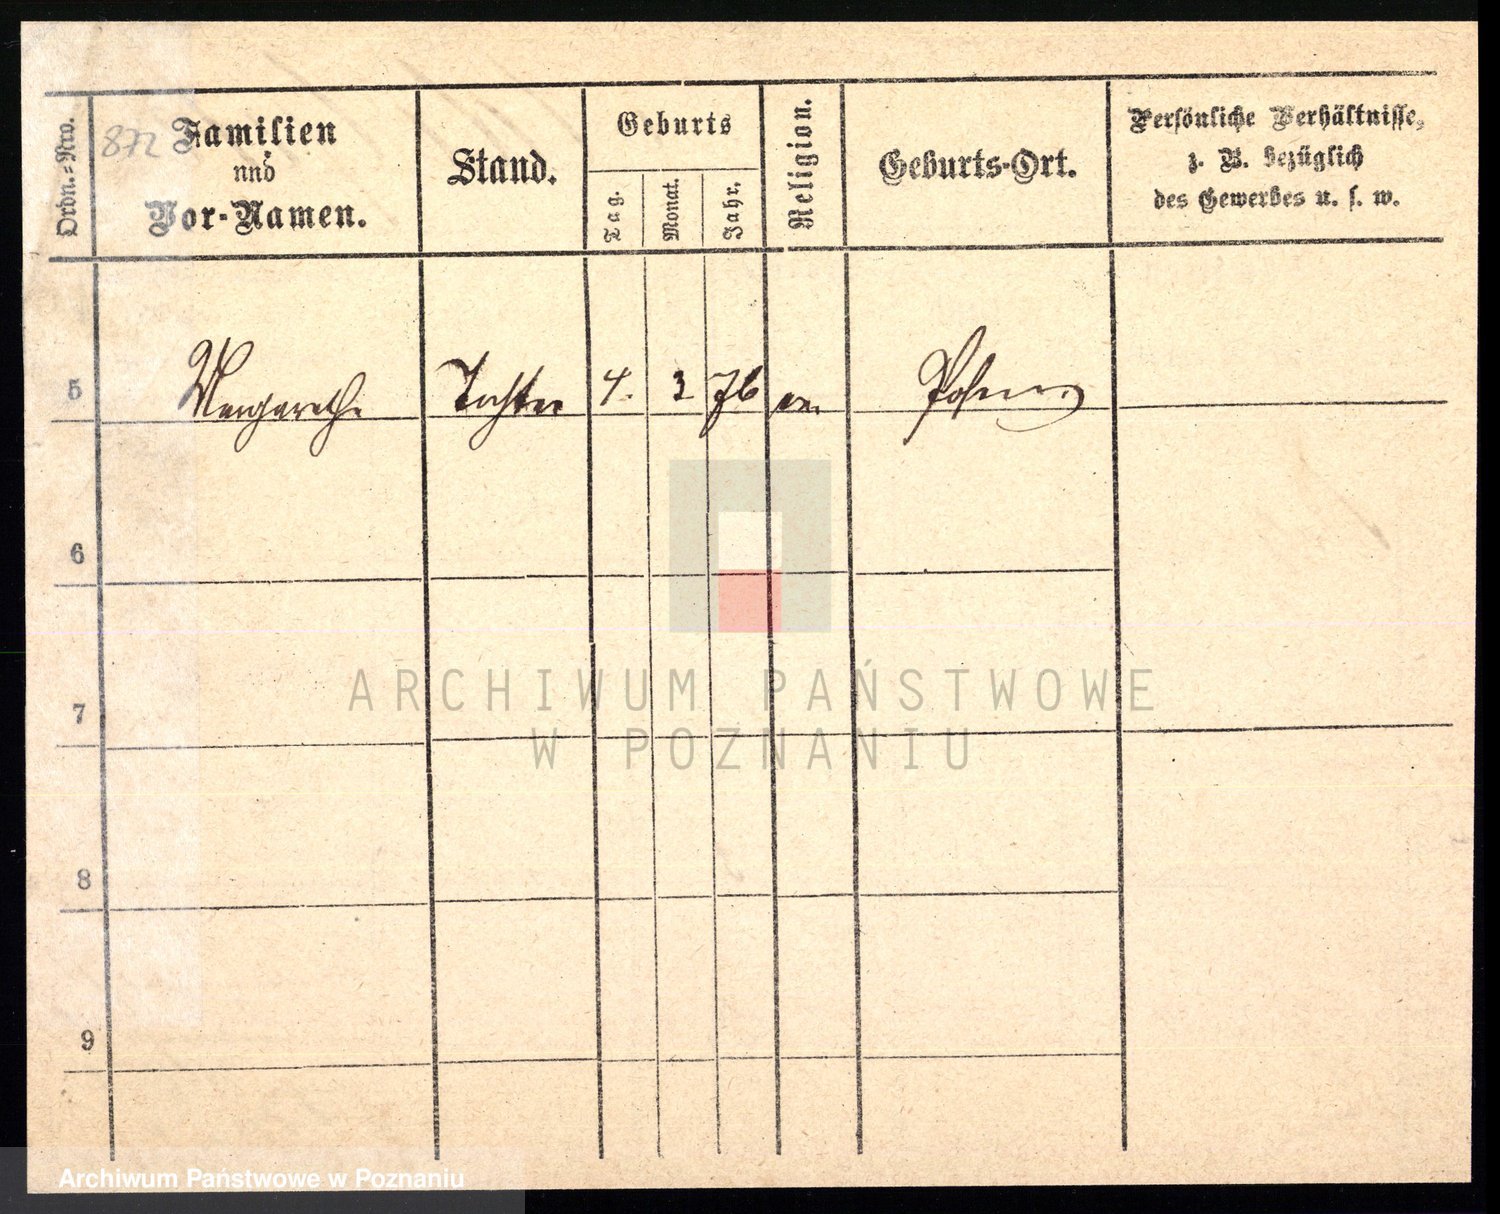 Ordn.-Nro.
872
Familien
und
Vor-Namen.
Stand.
Geburts
Tag.
Monat.
Jahr.
Religion.
Geburts-Ort.
Persönliche Verhältnisse,
z. B. bezüglich
des Gewerbes u. s. w.
5 Margarethe Tochter 4. 3 76 ev. Posen
6
7
8
9
ARCHIWUM PAŃSTWOWE
W POZNANIU
Archiwum Państwowe w Poznaniu